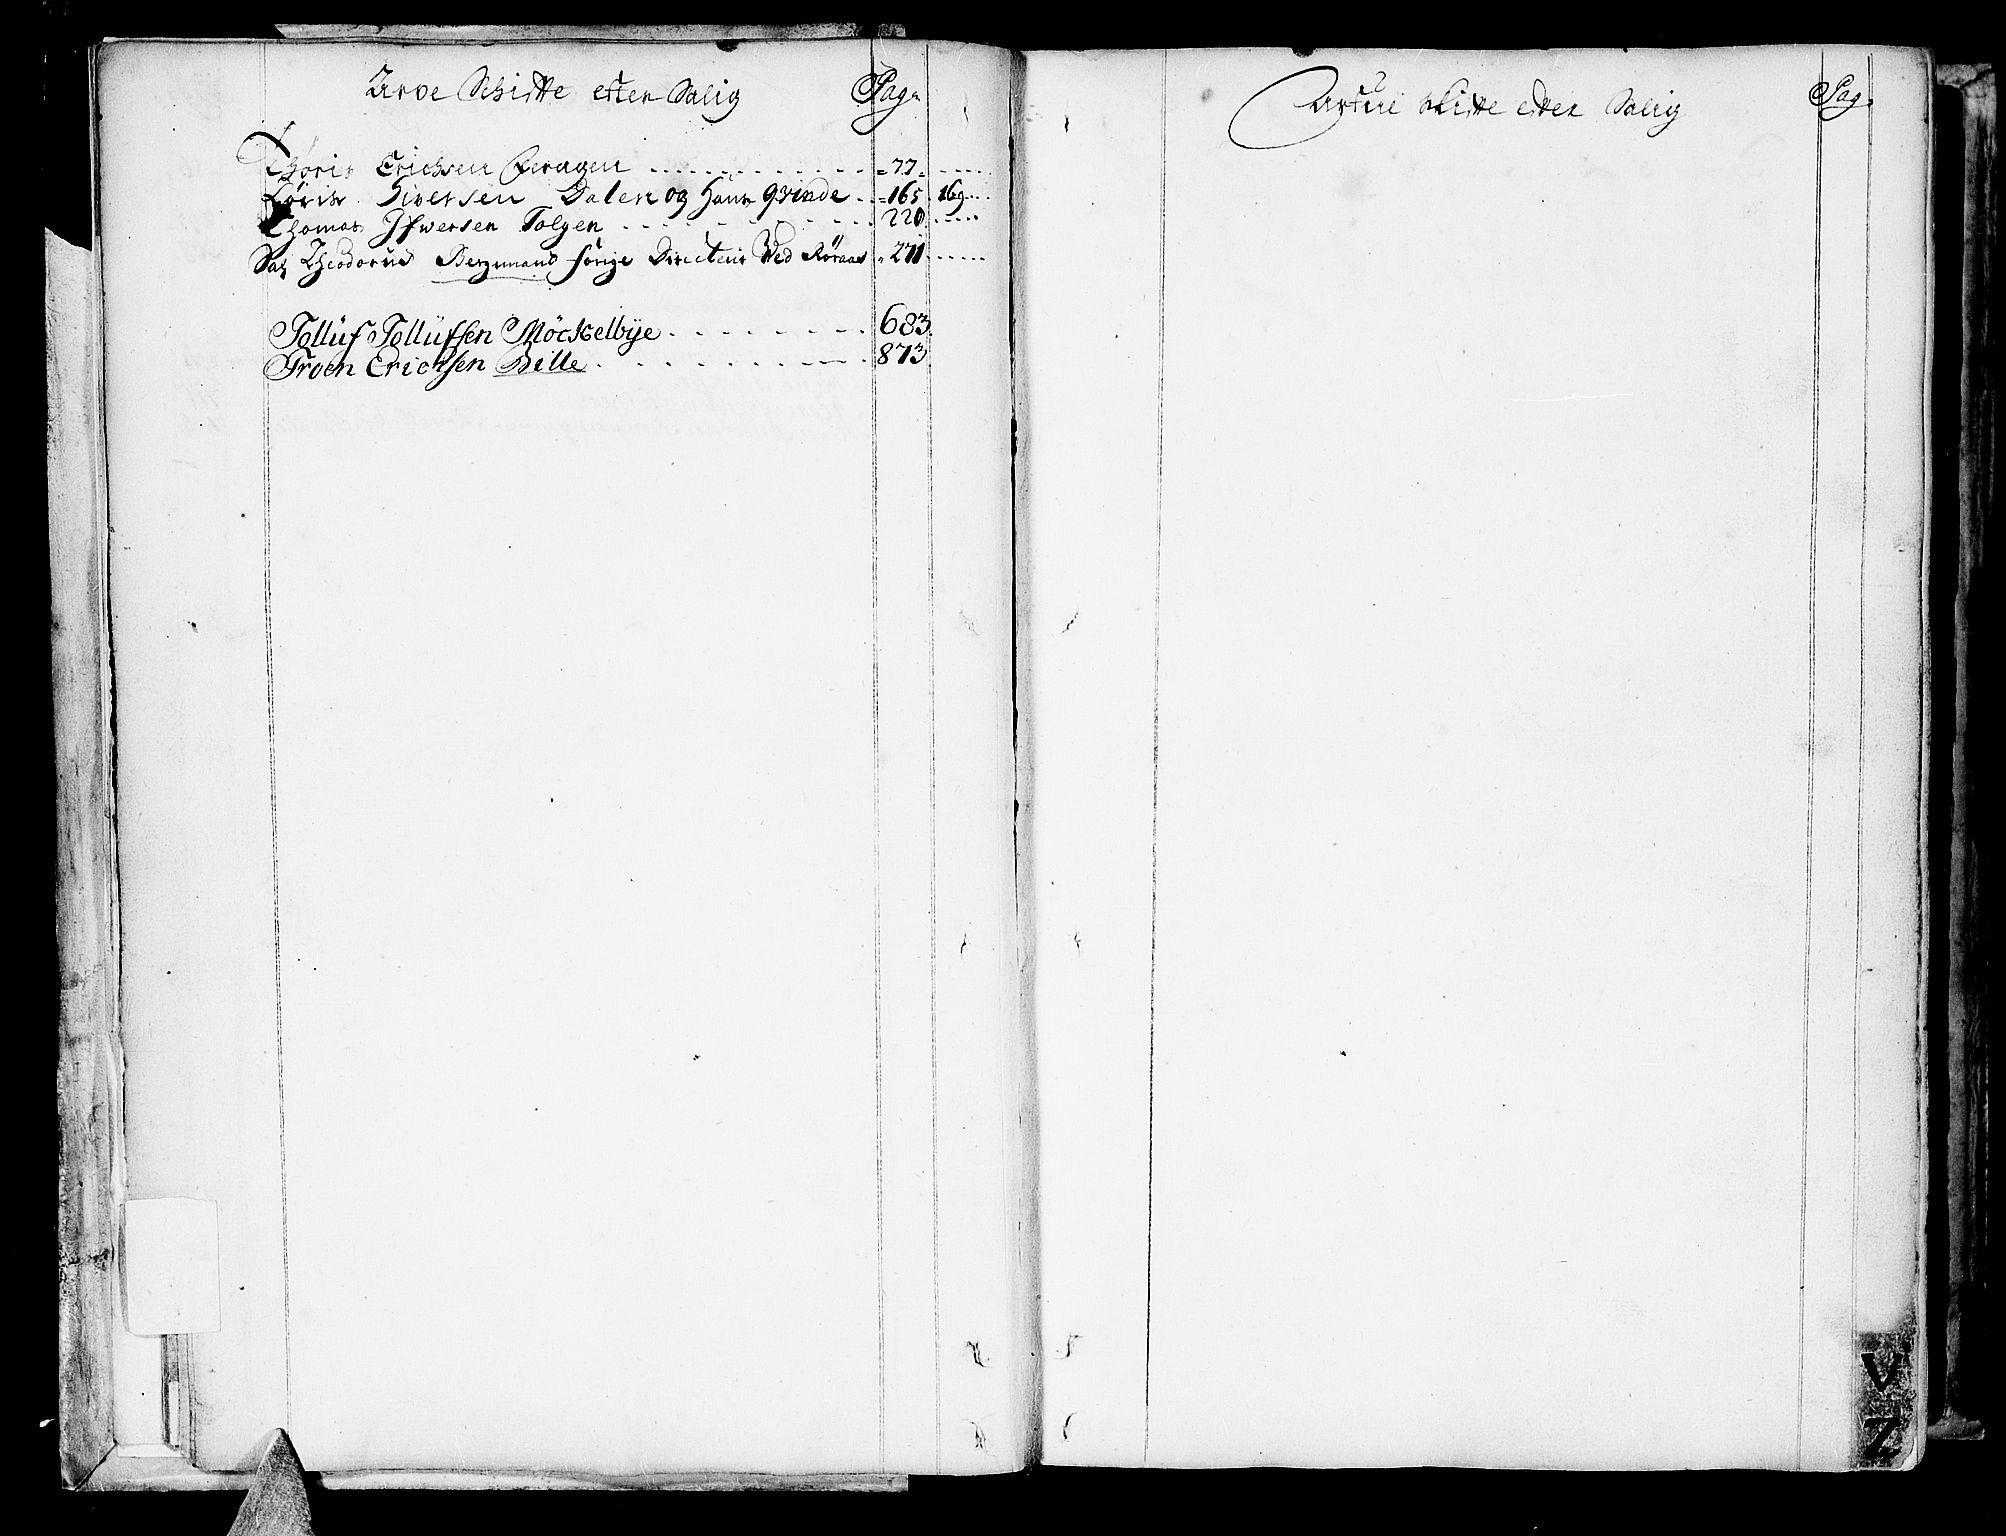 Arve Schifte efter Salig Pag.
Thøris Erichsen Feragen 77
Tøris Siversen Dalen og Hans Qvinde 165. 169
Thomas Ifwersen Tolgen 220
Sal Theodorus Bergmand forige Directeur Ved Røraas 271
Tolluf Tollufsen Möckelbye 683
Troen Erichsen Bille 873
Skifte efter Salig Pag.
V
Z